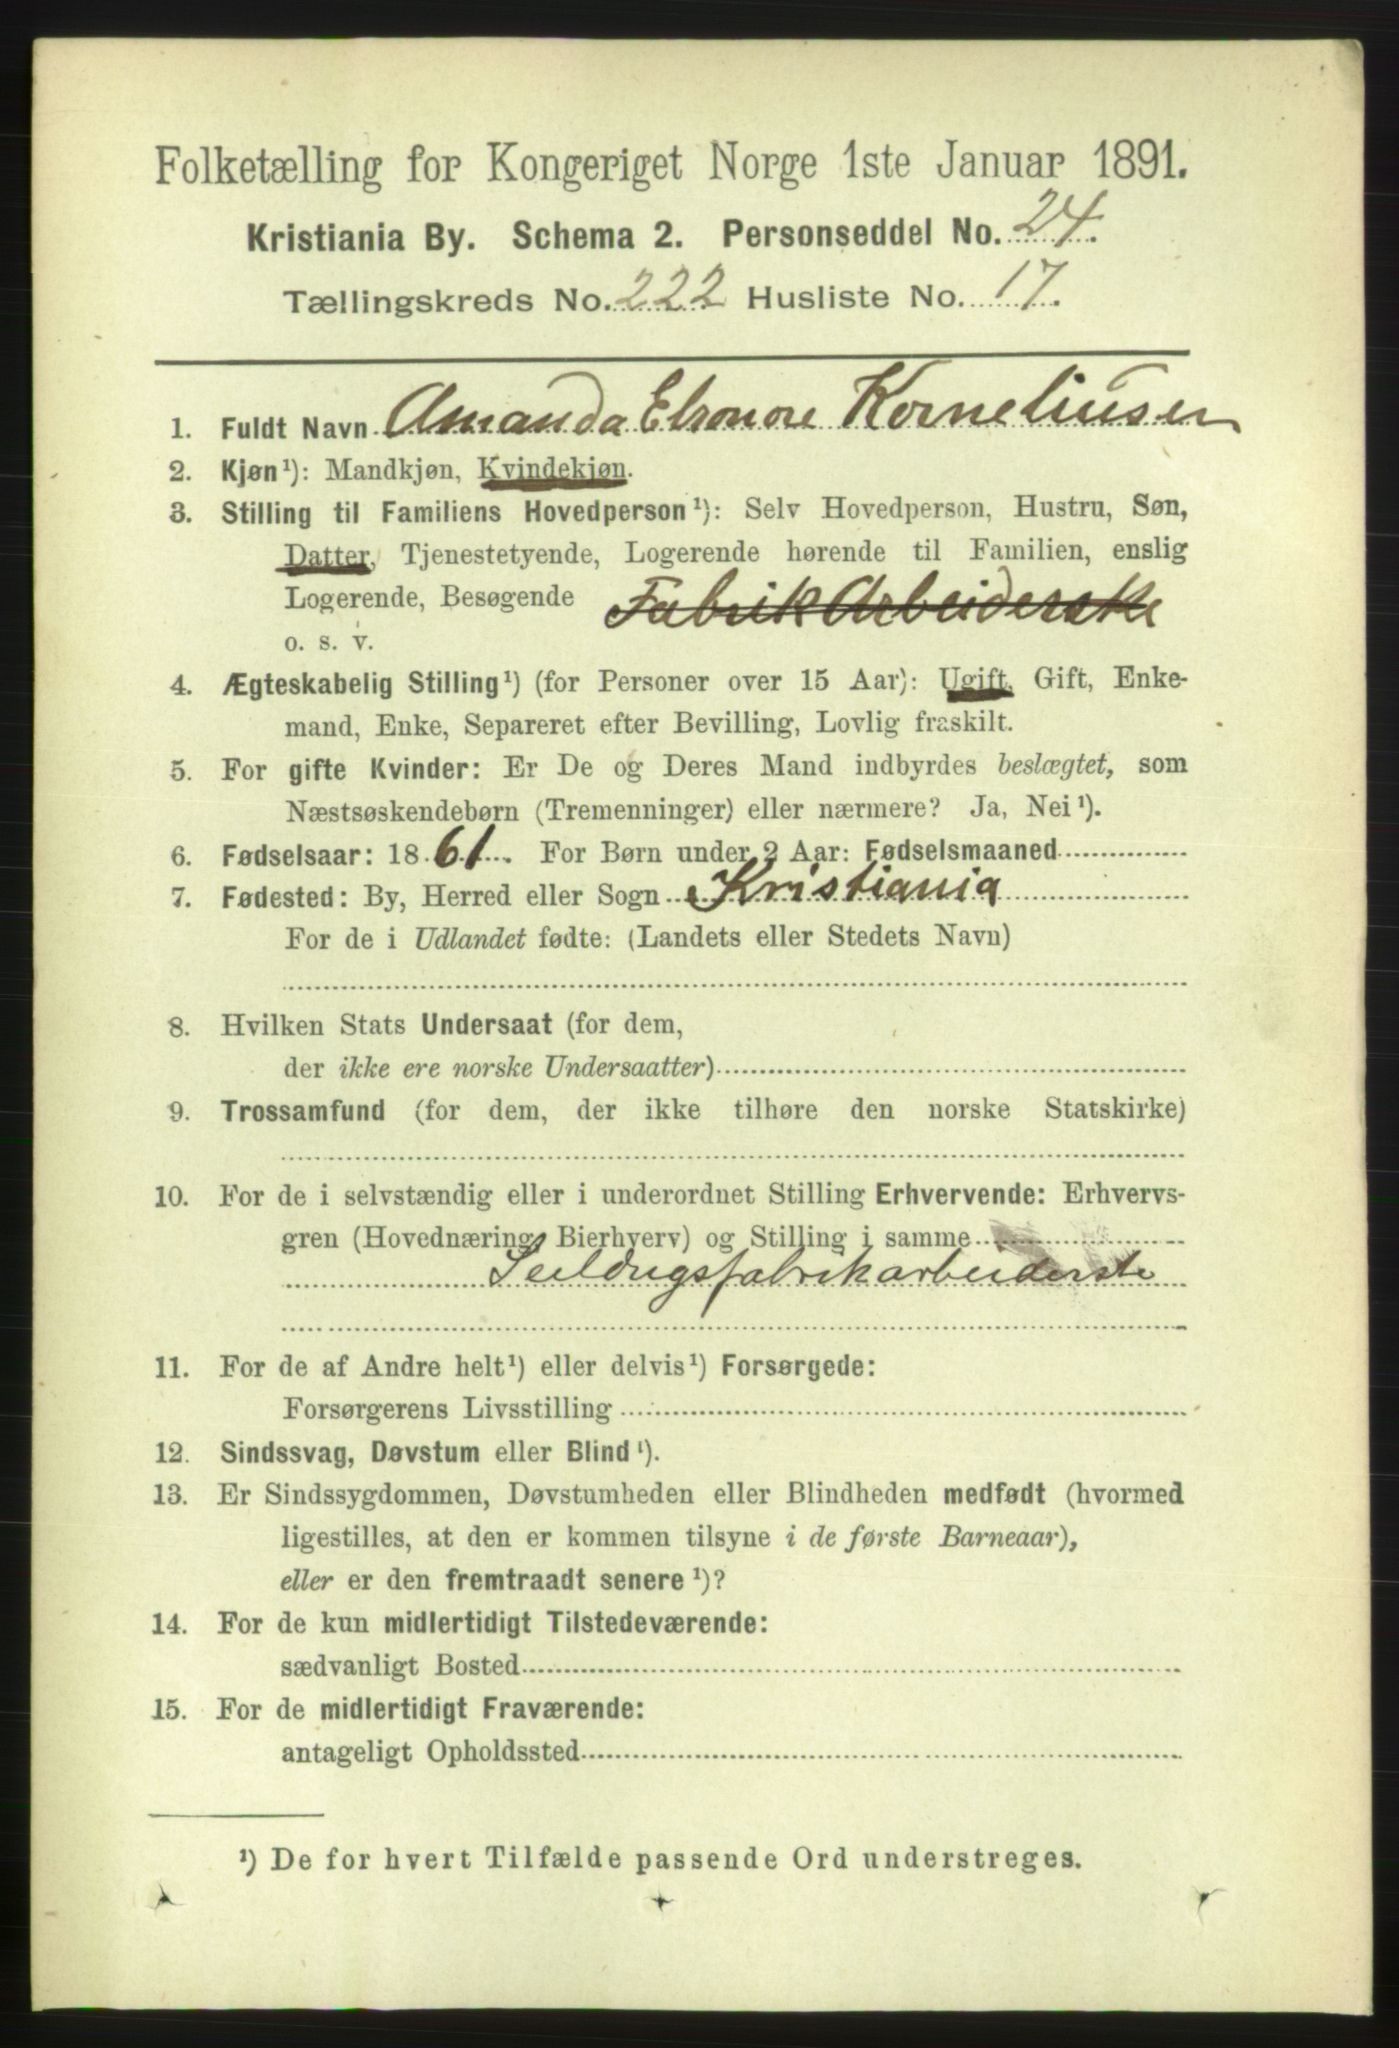 Folketælling for Kongeriget Norge 1ste Januar 1891.
Kristiania By. Schema 2. Personseddel No. 24.
Tællingskreds No. 222 Husliste No. 17.
1. Fuldt Navn Amanda Elronore Korneliusen
2. Kjøn¹): Mandkjøn, Kvindekjøn.
3. Stilling til Familiens Hovedperson¹): Selv Hovedperson, Hustru, Søn,
Datter, Tjenestetyende, Logerende hørende til Familien, enslig
Logerende, Besøgende Fabrik Arbeiderske
o. s. v.
4. Ægteskabelig Stilling¹) (for Personer over 15 Aar): Ugift, Gift, Enke-
mand, Enke, Separeret efter Bevilling, Lovlig fraskilt.
5. For gifte Kvinder: Er De og Deres Mand indbyrdes beslægtet, som
Næstsøskendebørn (Tremenninger) eller nærmere? Ja, Nei¹).
6. Fødselsaar: 1861. For Børn under 2 Aar: Fødselsmaaned
7. Fødested: By, Herred eller Sogn Kristiania
For de i Udlandet fødte: (Landets eller Stedets Navn)
8. Hvilken Stats Undersaat (for dem,
der ikke ere norske Undersaatter)
9. Trossamfund (for dem, der ikke tilhøre den norske Statskirke)
10. For de i selvstændig eller i underordnet Stilling Erhvervende: Erhvervs-
gren (Hovednæring, Bierhverv) og Stilling i samme
Seildugsfabrikarbeiderske
11. For de af Andre helt¹) eller delvis¹) Forsørgede:
Forsørgerens Livsstilling
12. Sindssvag, Døvstum eller Blind¹).
13. Er Sindssygdommen, Døvstumheden eller Blindheden medfødt (hvormed
ligestilles, at den er kommen tilsyne i de første Barneaar),
eller er den fremtraadt senere¹)?
14. For de kun midlertidigt Tilstedeværende:
sædvanligt Bosted
15. For de midlertidigt Fraværende:
antageligt Opholdssted
¹) De for hvert Tilfælde passende Ord understreges.